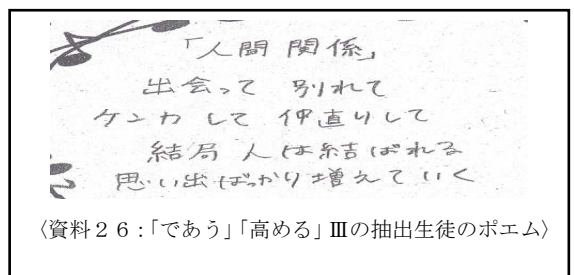 「人間関係」
出会って 別れて
ケンカして 仲直りして
結局 人は結ばれる
思い出ばっかり増えていく
〈資料26:「であう」「高める」Ⅲの抽出生徒のポエム〉